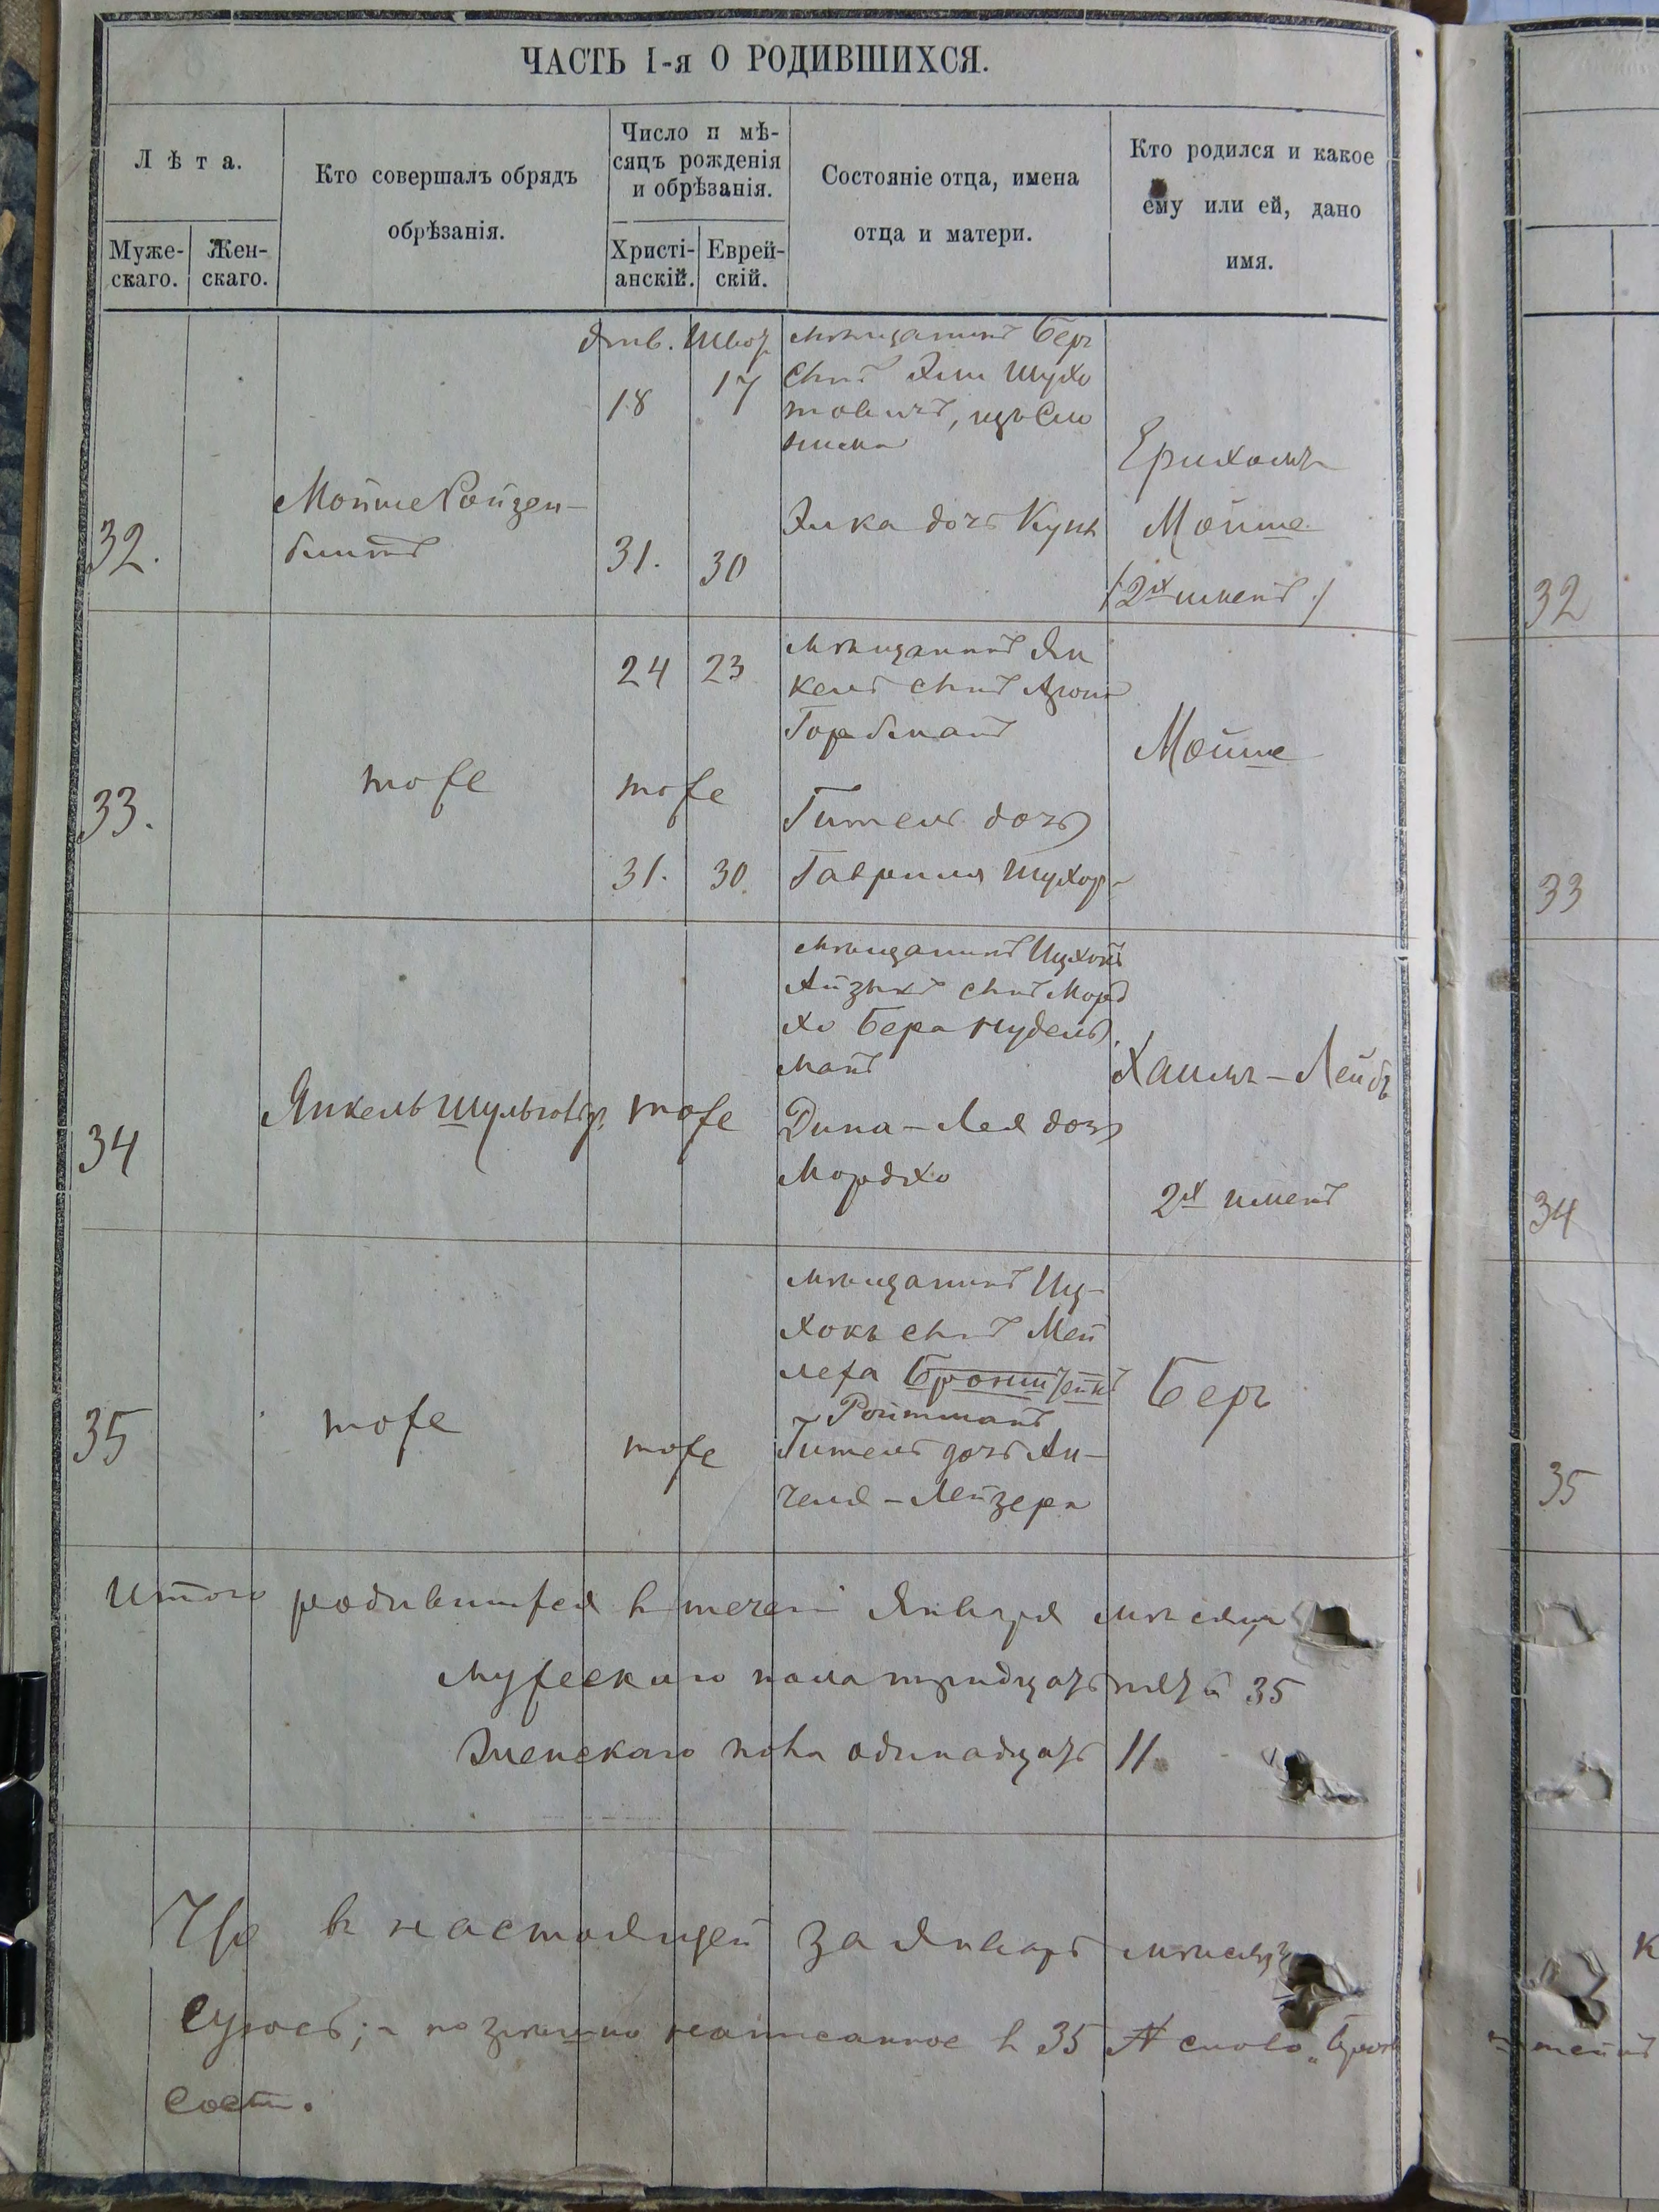 ЧАСТЬ I-я О РОДИВШИХСЯ.
Лѣта.
Муже-
скаго.
Жен-
скаго.
Кто совершалъ обрядъ
обрѣзанія.
Число и мѣ-
сяцъ рожденія
и обрѣзанія.
Христі-
анскій.
Еврей-
скій.
Состояніе отца, имена
отца и матери.
Кто родился и какое
ему или ей, дано
имя.
32.
Мойше Ройзен-
блитъ
Янв. Шват
18 17
31. 30
Мѣщанинъ Беръ
сынъ Эли Шухо
товичъ, изъ
Элка дочь
Мойше
/2хъ именъ/
32
33.
тоже
24 23
тоже
31. 30
Мѣщанинъ Ян
кель сынъ Арона
Горбманъ
Гитель дочь
Гаврила
Мойше
33
34
Янкель
тоже
Мѣщанинъ Ицхокъ
Айзыкъ сынъ Морд
хо Бера Нудель
манъ
Дина-Лея дочь
Мордхо
Хаимъ-Лейбъ
2хъ именъ
34
35
тоже
тоже
Мѣщанинъ Иц-
хокъ сынъ Мей
леха Бронштейнъ
Ройтманъ
Гитель дочь Ан-
челя-Лейзера
Беръ
35
Итого родившихся въ течении Января мѣсяца
Мужескаго пола тридцать пять 35
Женскаго пола одинадцать 11.
Что въ настоящей за Январь мѣсяцъ
написанное в 35 № слово „Брон
штейнъ